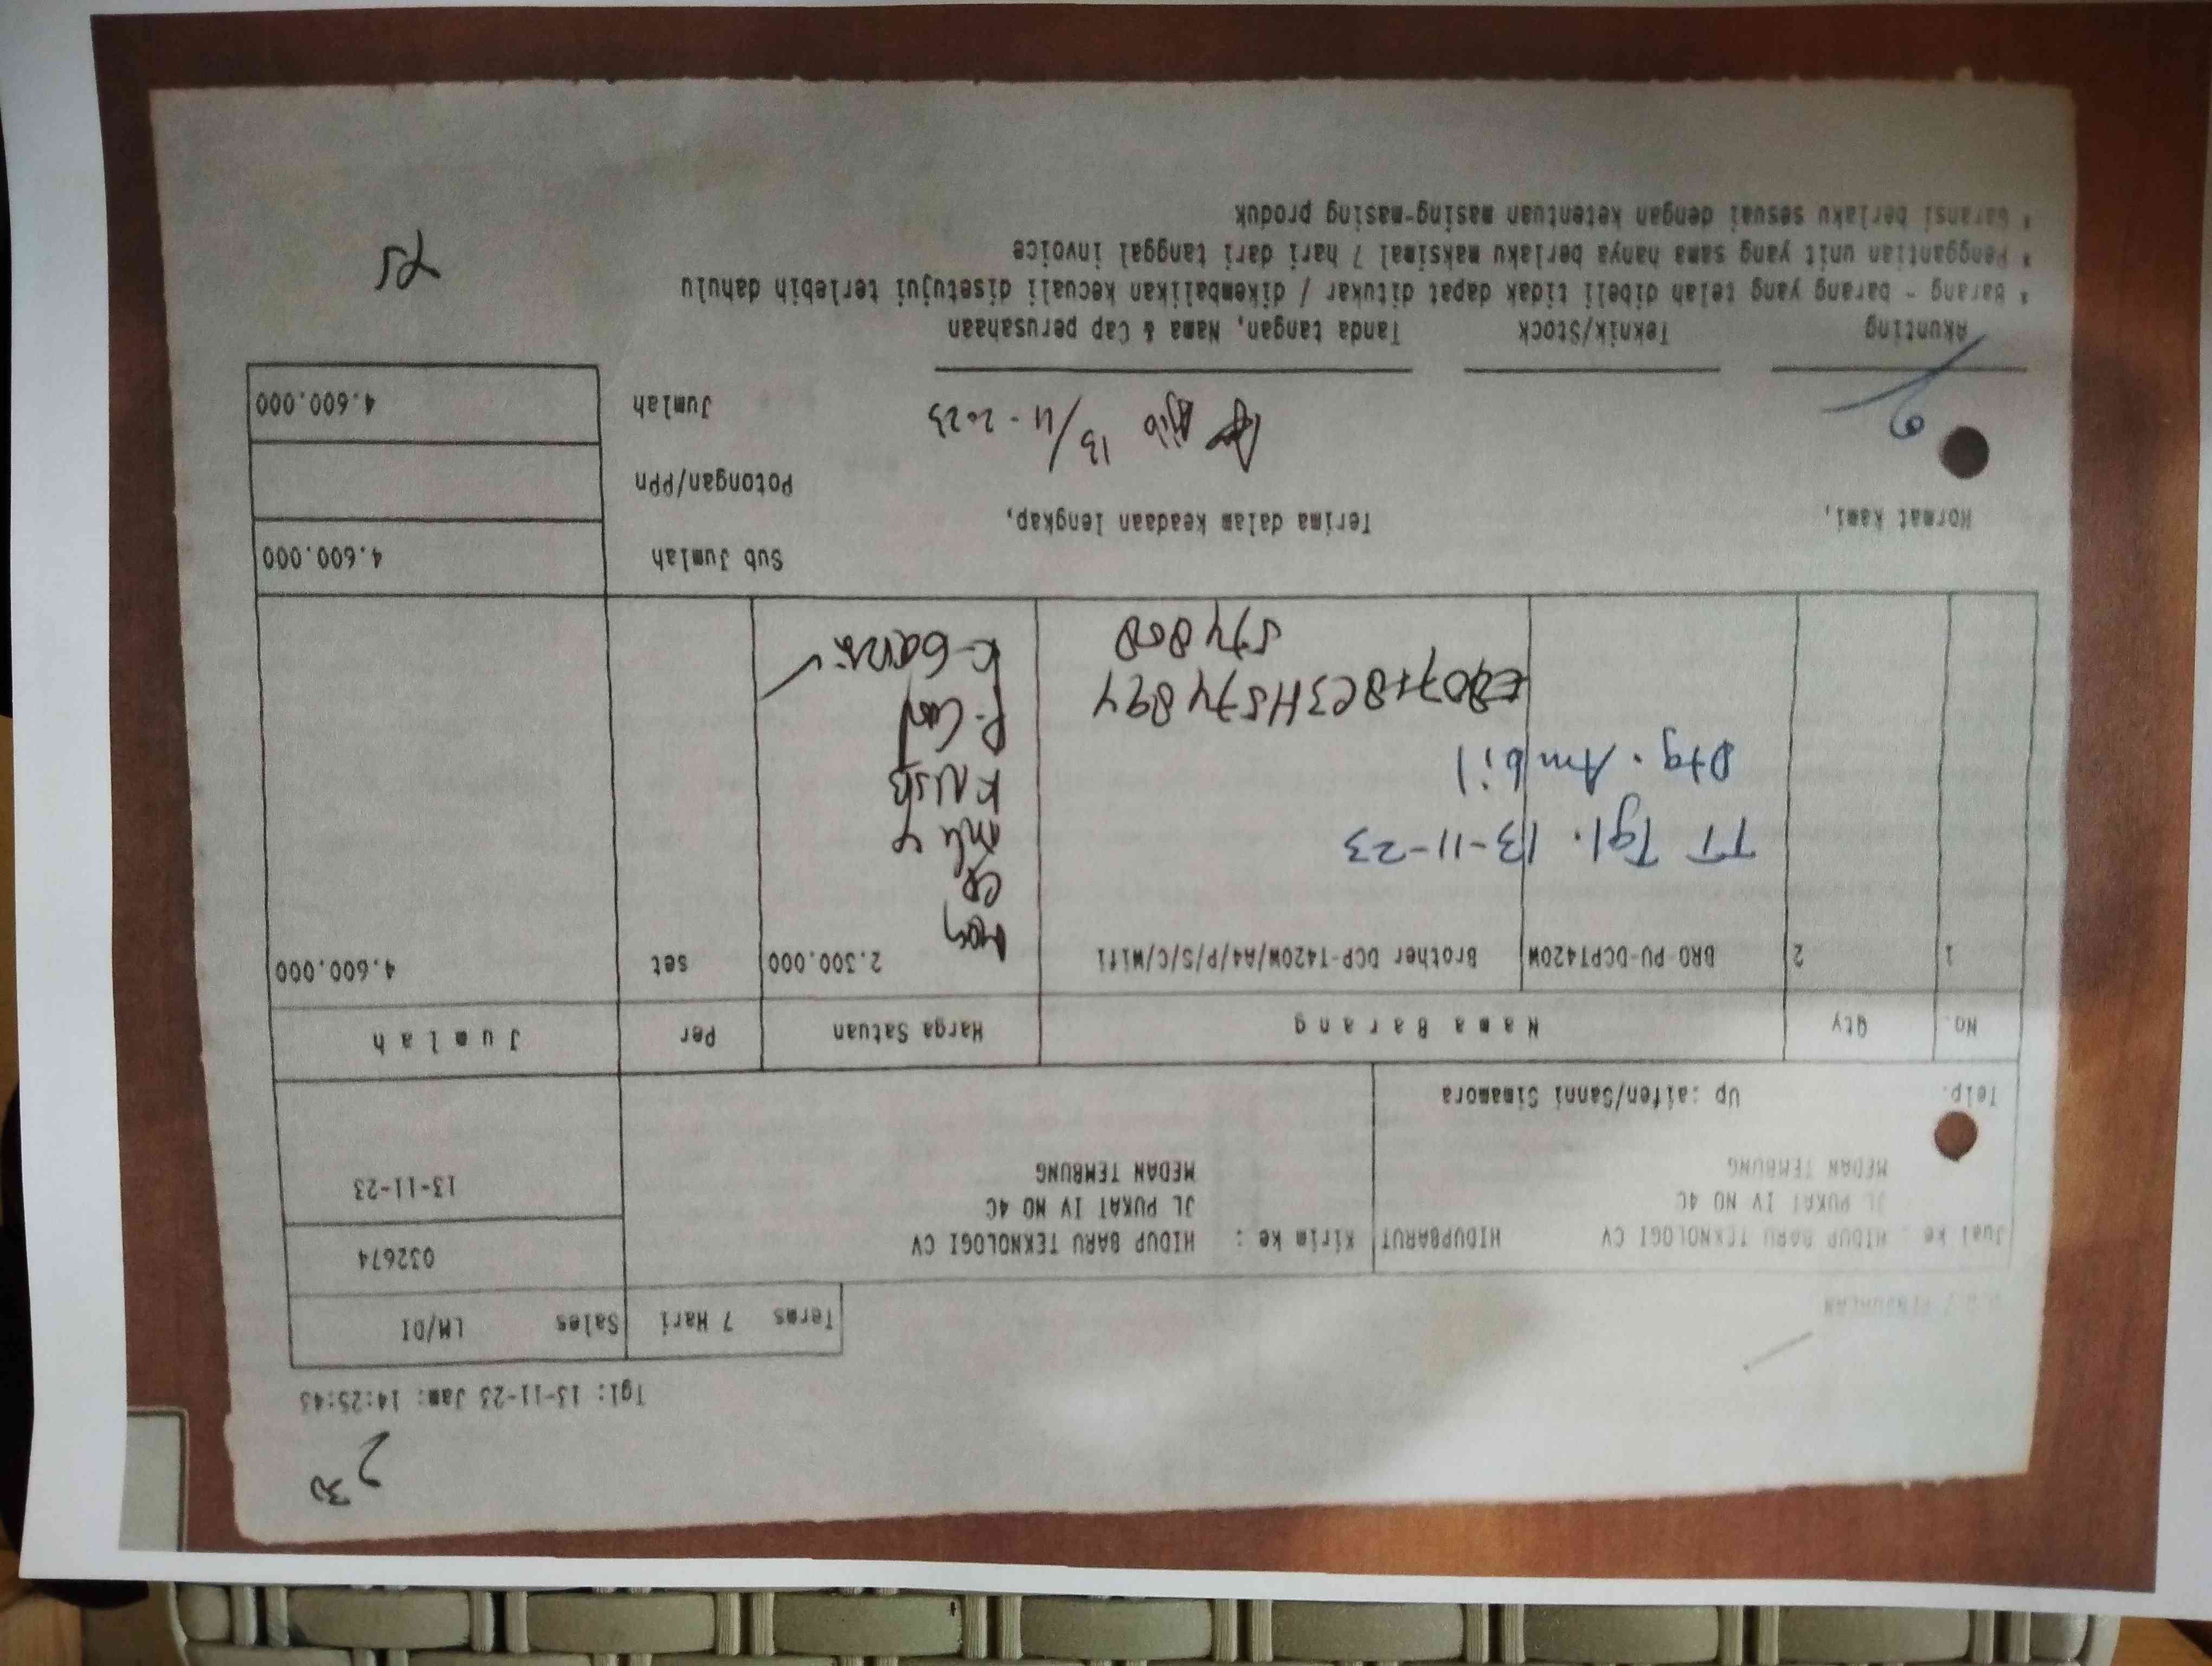 2 30
Tgl: 13-11-23 Jam: 14:25:43
Terms 7 Hari Sales LM/DI
032674
13-11-23
Jual ke : HIDUP BARU TEKNOLOGI CV HIDUPBARUT
JL PUKAT IV NO 4C
MEDAN TEMBUNG
Telp. Up :aifen/Sanni Simamora
Kirim ke : HIDUP BARU TEKNOLOGI CV
JL PUKAT IV NO 4C
MEDAN TEMBUNG
No. Qty Nama Barang Harga Satuan Per Jumlah
1 2 BRO PU-DCPT420W Brother DCP-T420W/A4/P/S/C/Wifi 2.300.000 set 4.600.000
TT Tgl. 13-11-23
Dtg. Ambil
574894
574808
Hormat Kami,
Terima dalam keadaan lengkap,
Sub Jumlah 4.600.000
Potongan/PPn
Jumlah 4.600.000
13/11-2023
Akunting Teknik/Stock Tanda tangan, Nama & Cap perusahaan
* Barang - barang yang telah dibeli tidak dapat ditukar / dikembalikan kecuali disetujui terlebih dahulu
* Penggantian unit yang sama hanya berlaku maksimal 7 hari dari tanggal invoice
* Garansi berlaku sesuai dengan ketentuan masing-masing produk